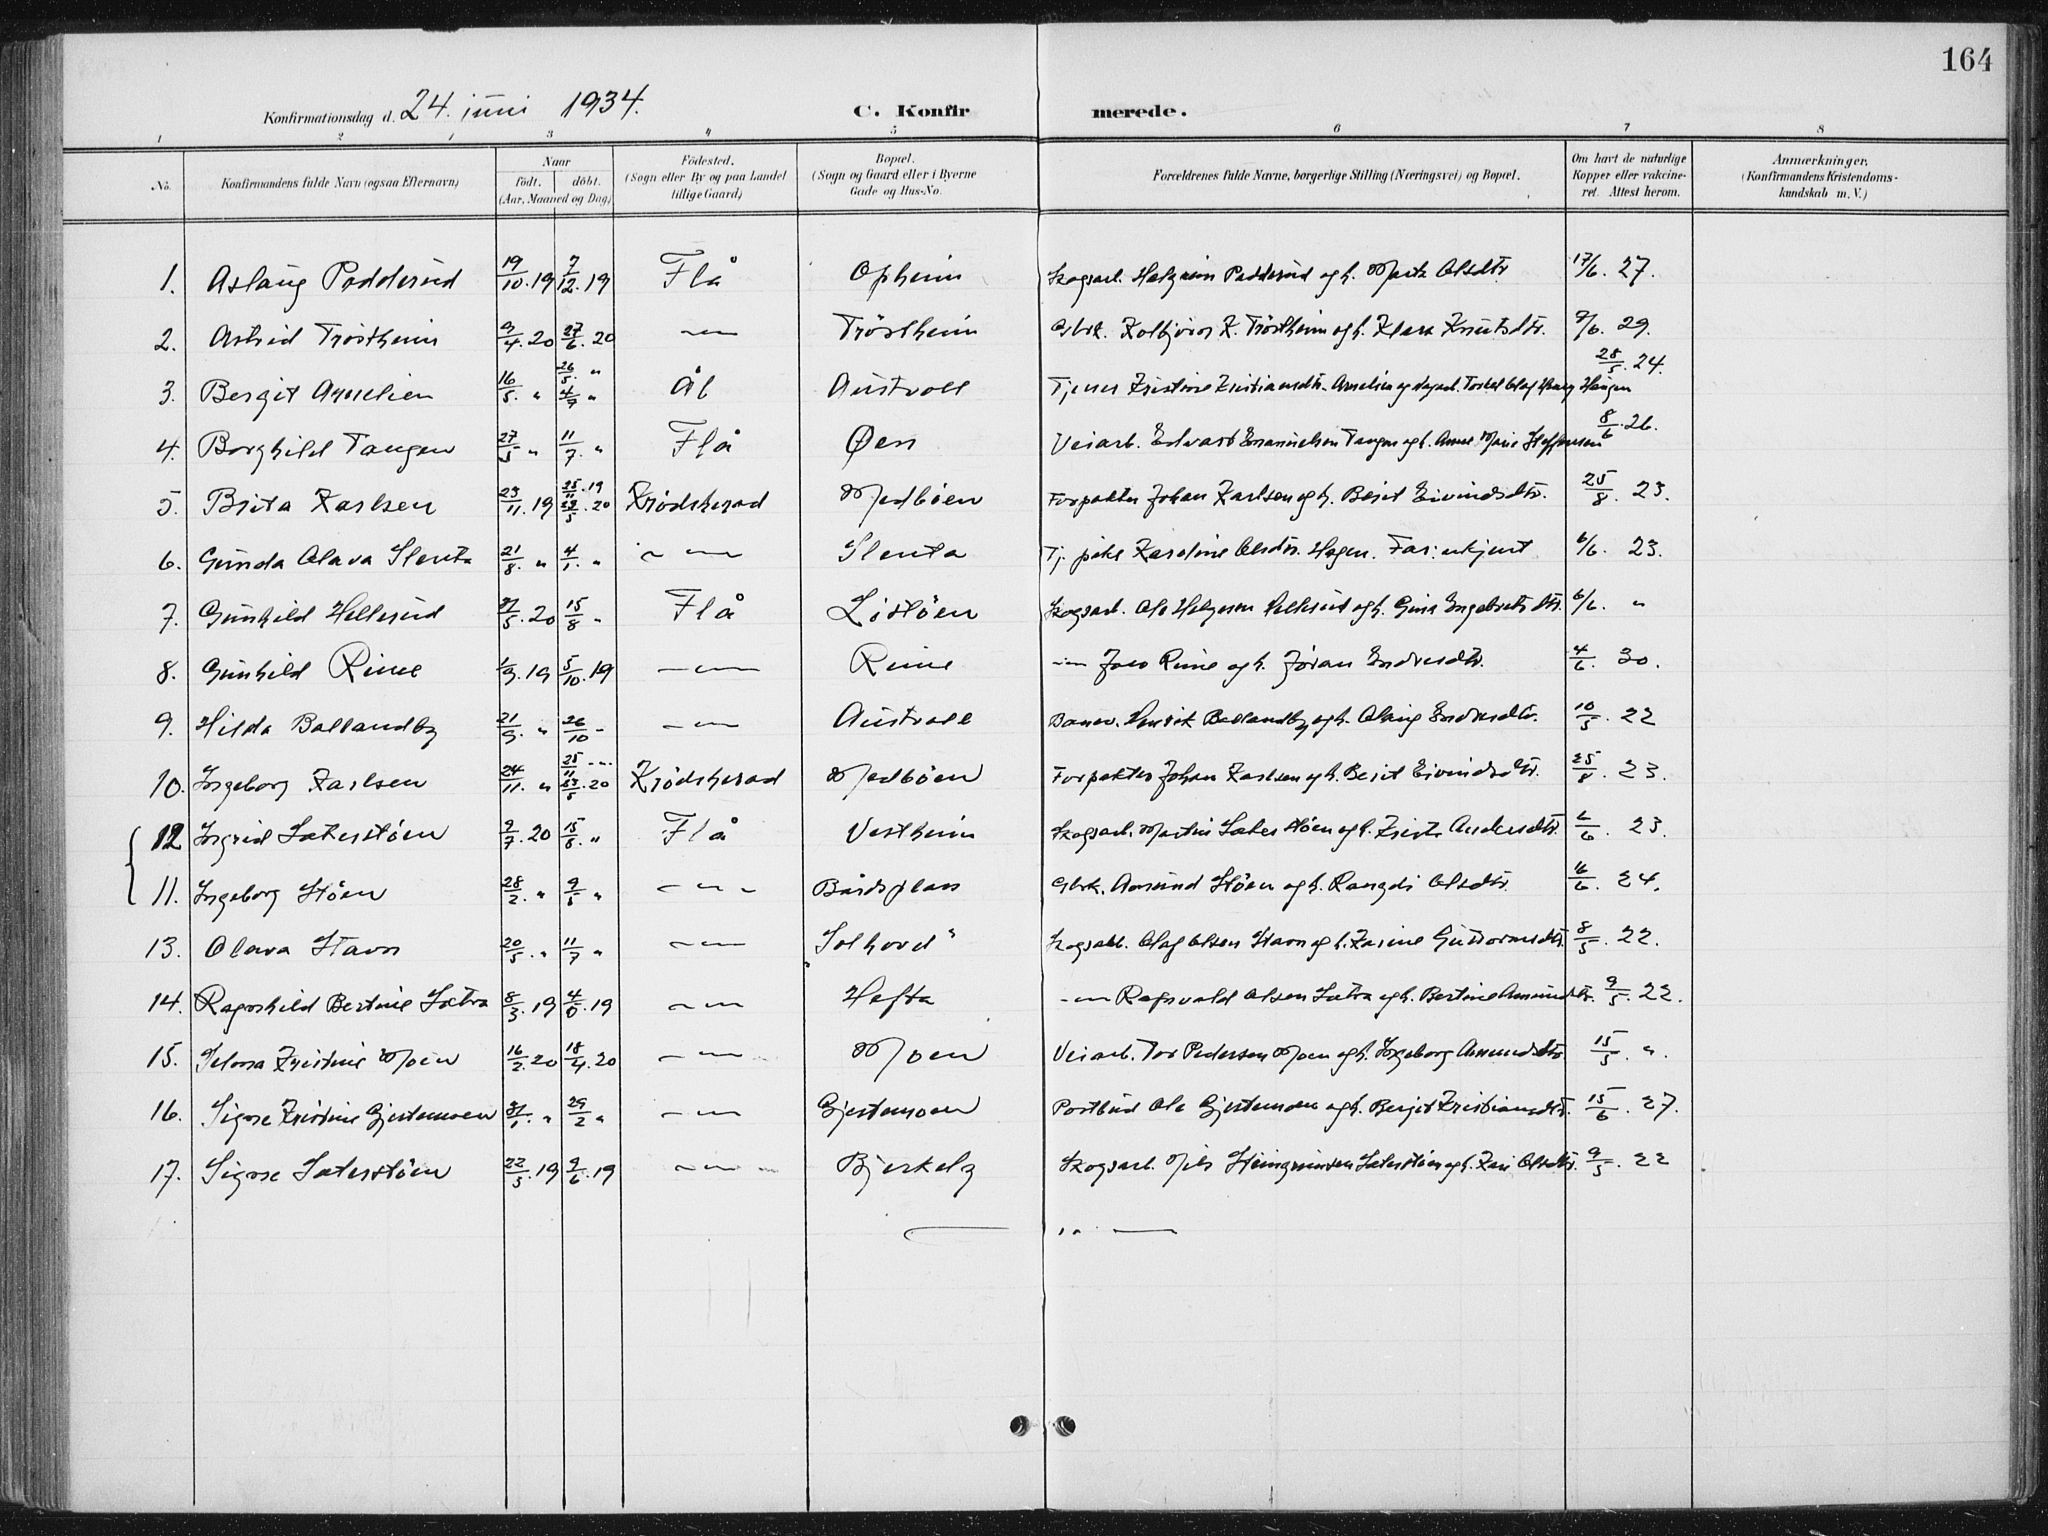 164
Konfirmationsdag d. 24. juni 1934. C. Konfirmerede.
1 2 3 4 5 6 7 8
No. Konfirmandens fulde Navn (ogsaa Efternavn) Naar födt. döbt. (Aar, Maaned og Dag) Födested. (Sogn eller By og paa Landet tillige Gaard) Bopæl. (Sogn og Gaard eller i Byerne Gade og Hus-No. Forældrenes fulde Navne, borgerlige Stilling (Næringsvei) og Bopæl. Om havt de naturlige Kopper eller vakcineret. Attest herom. Anmærkninger, (Konfirmandens Kristendomskundskab m. V.)
1. Aslaug Poddesrud 19/10.19 7/12.19 Flå Opheim Skogsarb. Halgrim og h. Olsdtr. 17/6. 27.
2. Astrid Tröstheim 9/4.20 27/6.20 -〃- Tröstheim Gbrk. Kolbjörn K. Tröstheim og h. Klara Knutsdtr. 9/6. 29.
3. Bergit Amelien 16/5. " 26/5. " 4/7 " Ål Austvoll Tjener Kristine Kristiansdtr. Amelien og Haugen 28/5. 24.
4. Borghild Tangen 27/5 " 11/7. " Flå Øen Veiarb. Edvart Emanuelsen Tangen og h. Anne Marie Steffensen 8/6. 26.
5. Brita Karlsen 23/11.19 25/11.19 23/5.20 Krödsherad Medböen Forpakter Johan Karlsen og h. Berit Eivindsdtr. 25/8. 23.
6. Gunda Olava Slenta 21/8. " 4/1. " -〃- Slenta Tj. pike Karoline Olsdtr. Hagen. Far: ukjent 6/6. 23.
7. Gunhild Hellerud 31/5.20 15/8 " Flå Listöen Skogsarb. Ole Helgesen Hellerud og h. Gina Engebretsdtr. 6/6. "
8. Gunhild Rime 1/9.19 5/10.19 -〃- Rime -〃- Rime og h. Jöran Endresdtr. 4/6. 30.
9. Hilda Ballandby 21/9. " 26/10 - -〃- Austvoll Henrik Ballandby og h. Olaug Endresdtr. 10/5. 22
10. Ingeborg Karlsen 24/11. " 25/11 -〃- 23/5.20 Krödsherad Medböen Forpakter Johan Karlsen og h. Berit Eivindsdtr. 25/8. 23.
12 Ingrid Säterstöen 9/7.20 15/8. " Flå Vestheim Skogsarb. Martin Säterstöen og h. Andersdtr. 6/6. 23.
11. Ingeborg Stöen 28/2. " 9/5 " -〃- Bårdsplass Gbrk. Amund Stöen og h. Rangdi Olsdtr. 16/6. 24.
13. Olava Stavn 20/5. " 11/7 " -〃- "Solhovd" Skogsarb. Olaf Olsen Stavn og h. Karine Guttormsdtr. 8/5. 22.
14. Ragnhild Bertine Sætra 8/3.19 4/5.19 -〃- Hefta -〃- Ragnvald Olsen Sætra og h. Bertine Amundsdtr. 9/5. 22.
15. Selma Kristine Moen 16/2.20 18/4.20 -〃- Moen Veiarb. Tor Pedersen Moen og h. Ingeborg Amundsdtr. 15/5. "
16. Signe Kristine Gjestemoen 31/1. " 29/2 " -〃- Gjestemoen Postbud Ole Gjestemoen og h. Bergit Kristiansdtr. 15/6. 27.
17. Signe Säterstöen 22/5.19 9/6.19 -〃- Bjerkely Skogsarb. Nils Steingrimsen Säterstöen og h. Kari Olsdtr. 9/5. 22